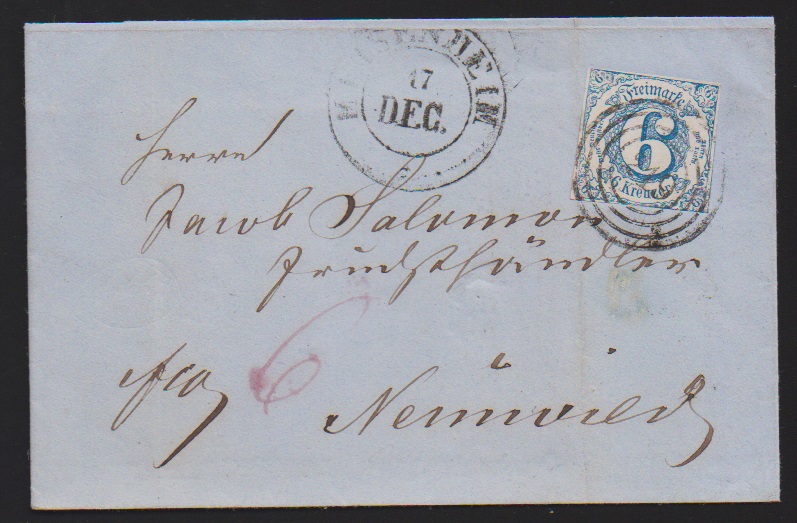 17
DEC.
Freimarke
6
6 Kreuzer
Herrn
Jacob Salomon
Fruchthändler
fco
6
Neuwied